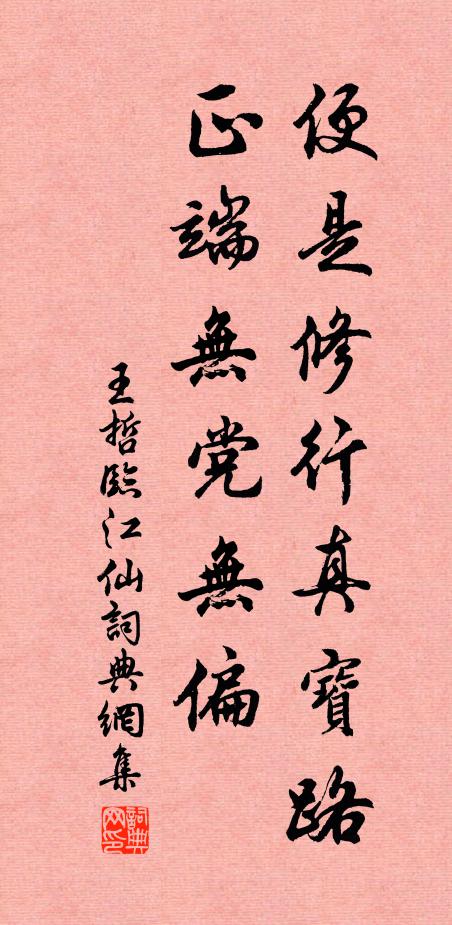 便是修行真寶路
正端無党無偏
王哲臨江仙詞典網集
詞典
网印